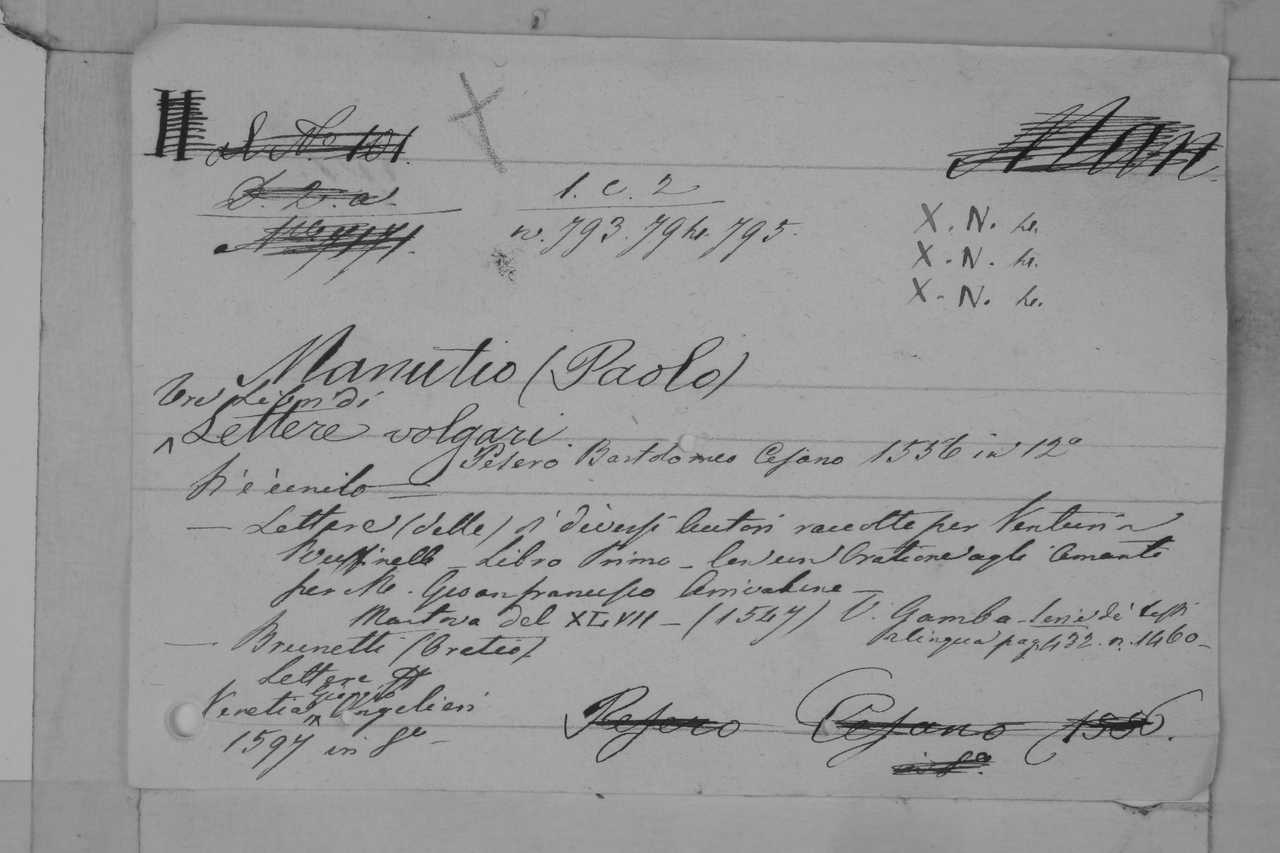 S. N° 101.
D. L. a.
1. C. 2
n. 793. 794. 795.
X. N. 4.
X. N. 4.
X. N. 4.
Manutio (Paolo)
Tre Libri di
Lettere volgari.
Pesero Bartolomeo Cesano 1556 in 12°
Vi è unito —
— Lettere (delle) di diversi Autori raccolte per Venturin
Ruffinelli – Libro Primo – Con un Oratione agli Amanti
per M. Gioanfrancesco Arrivabene –
Mantova del XLVII – (1547) V. Gamba – Serie di Testi
di lingua pag. 432. n. 1460 –
— Brunetti (Oratio)
Lettere
Venetia Giorgio Angelieri
1597 in 8° –
Pesero Cesano 1556.
in 8°.